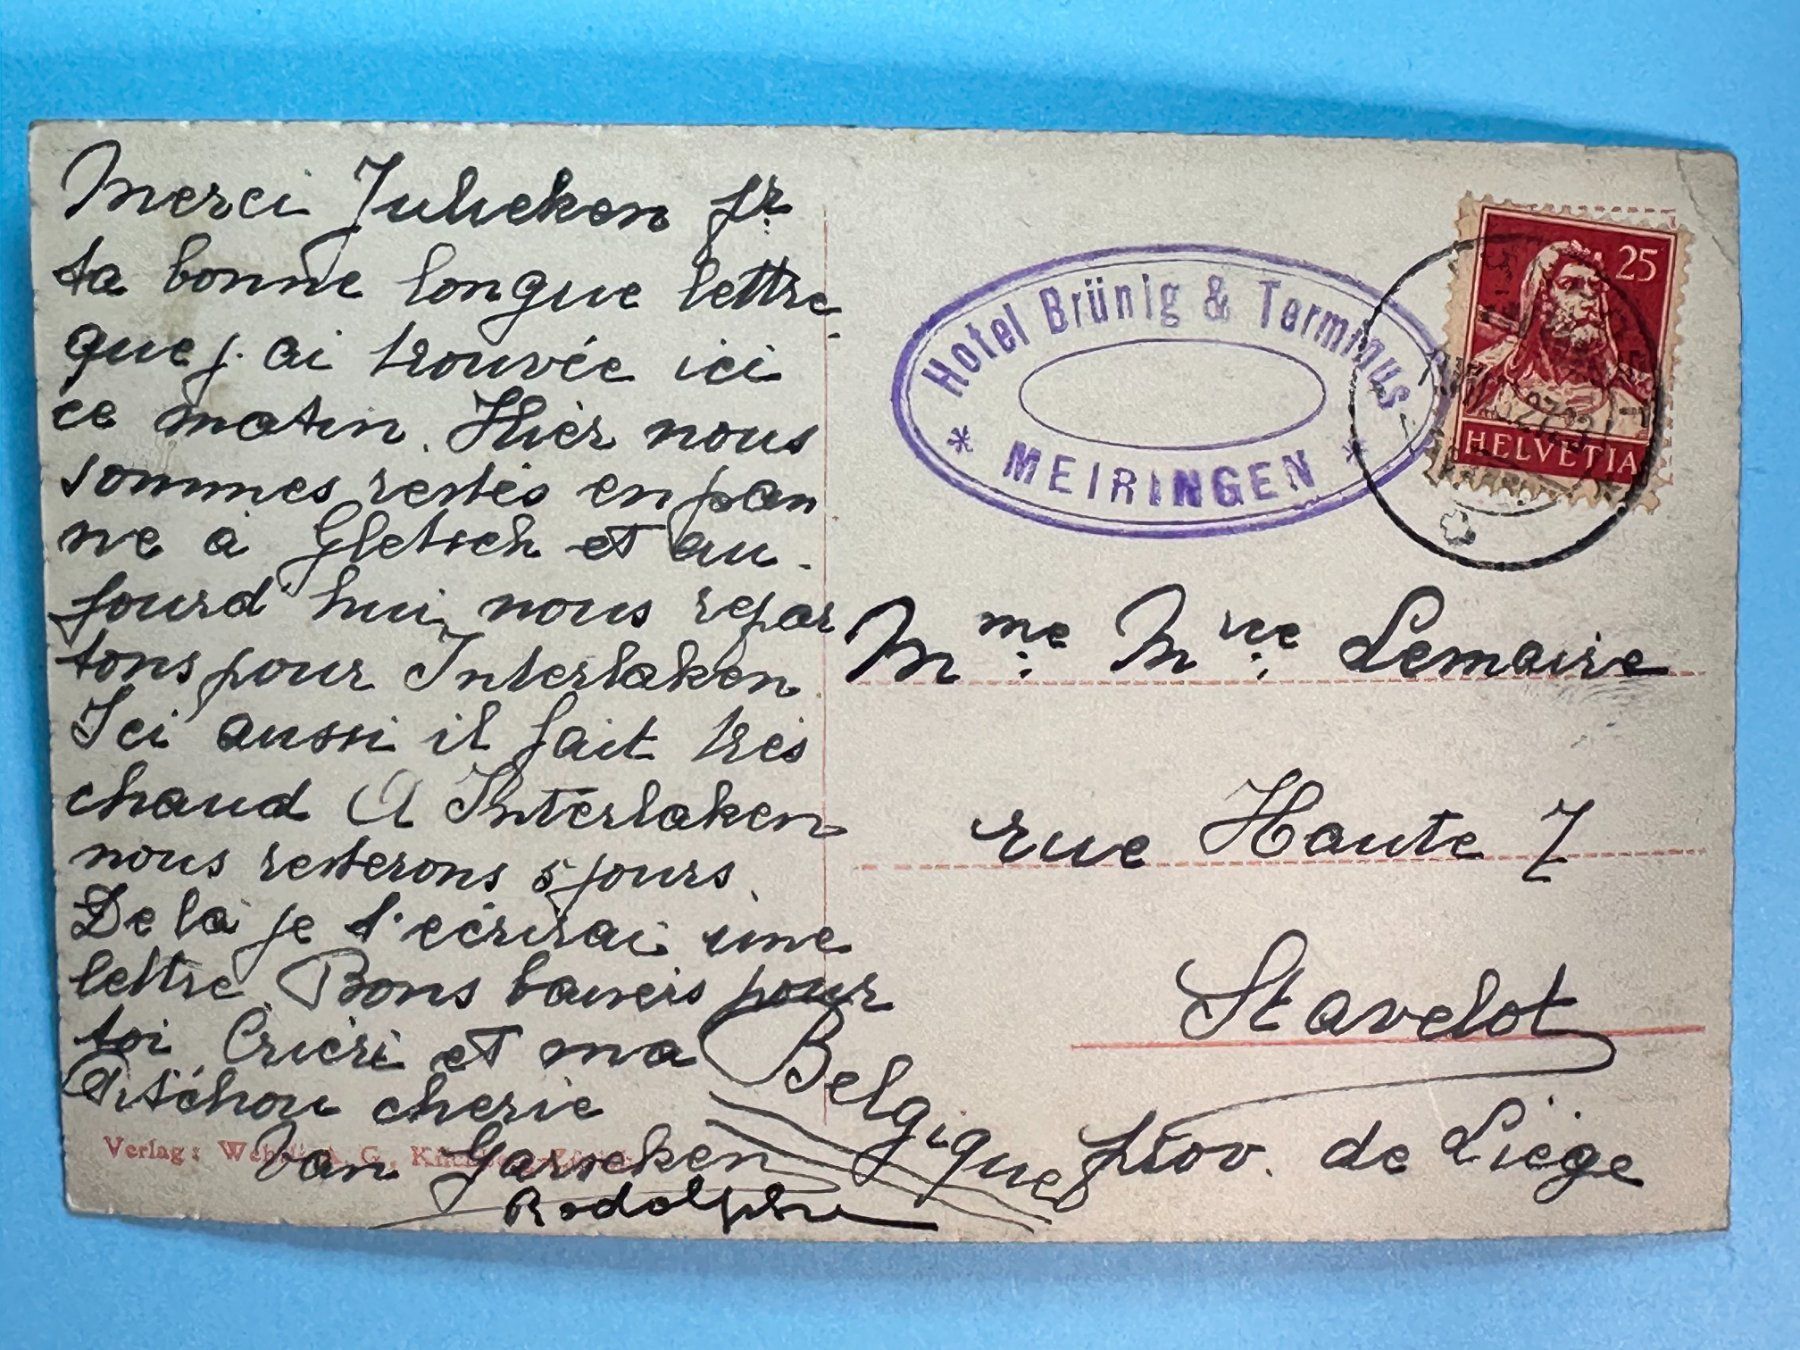 Merci Julieken pr
ta bonne longue lettre
que j'ai trouvée ici
ce matin. Hier nous
sommes restés en pan
ne à Gletsch et au
jourd'hui nous repar
tons pour Interlaken
Ici aussi il fait très
chaud A Interlaken
nous resterons 5 jours.
De là je t'écrirai une
lettre. Bons baisers pour
toi Cricri et ma
chérie
Van
Rodolphe
Verlag:
Hotel Brünig & Terminus
* MEIRINGEN *
25
HELVETIA
Mme Mce Lemaire
rue Haute 7
Stavelot
Prov. de Liège
Belgique